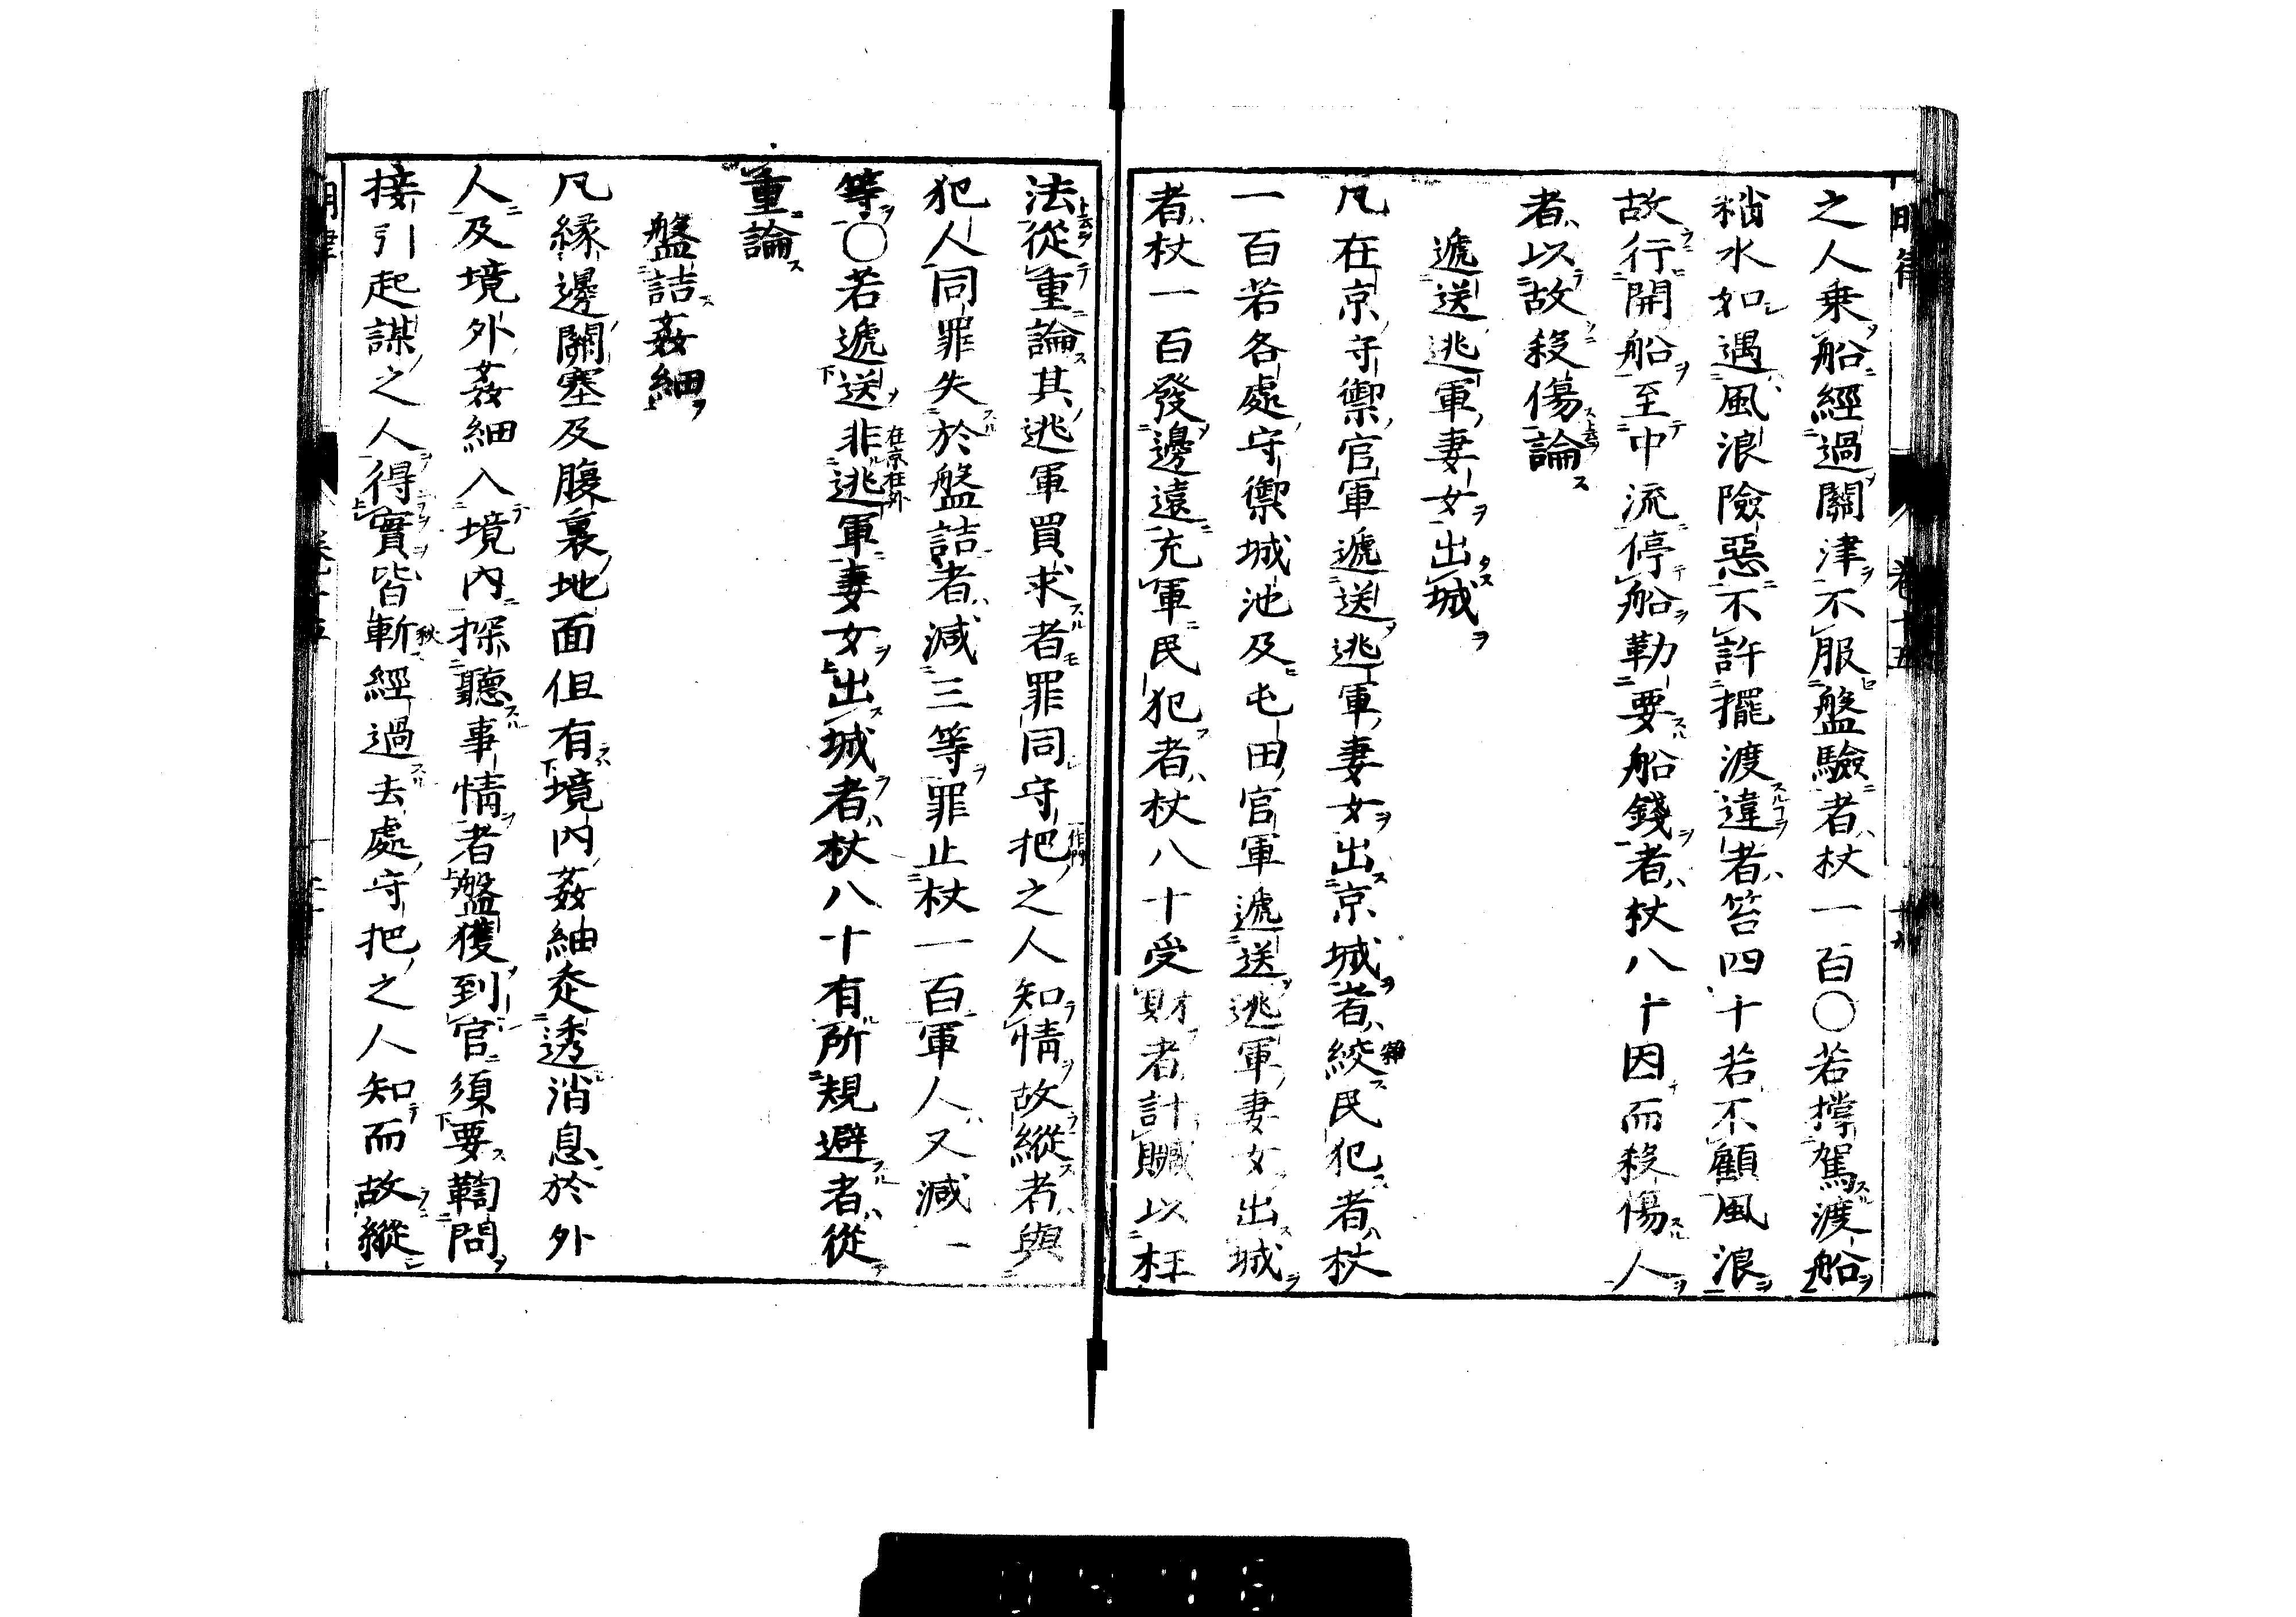 之人乗船經過關津不服盤驗者杖一百〇若撐駕渡船
稍水如遇風浪險惡不許擺渡違者笞四十若不顧風浪
故行開船至中流停船勒要船錢者杖八十因而殺傷人
者以故殺傷論
遞送逃軍妻女出城
凡在京守禦官軍遞送逃軍妻女出京城者絞民犯者杖
一百若各處守禦城池及屯田官軍遞送逃軍妻女出城
者杖一百發邊遠充軍民犯者杖八十受財者計贓以枉
法從重論其逃軍買求者罪同守把之人知情故縱者與
犯人同罪失於盤詰者減三等罪止杖一百軍人又減一
等〇若遞送非逃軍妻女出城者杖八十有所規避者從
重論
盤詰姦細
凡縁邊關塞及腹裏地面但有境内姦紬走透消息於外
人及境外姦細入境内探聽事情者盤獲到官須要鞫問
接引起謀之人得實皆斬經過去處守把之人知而故縱